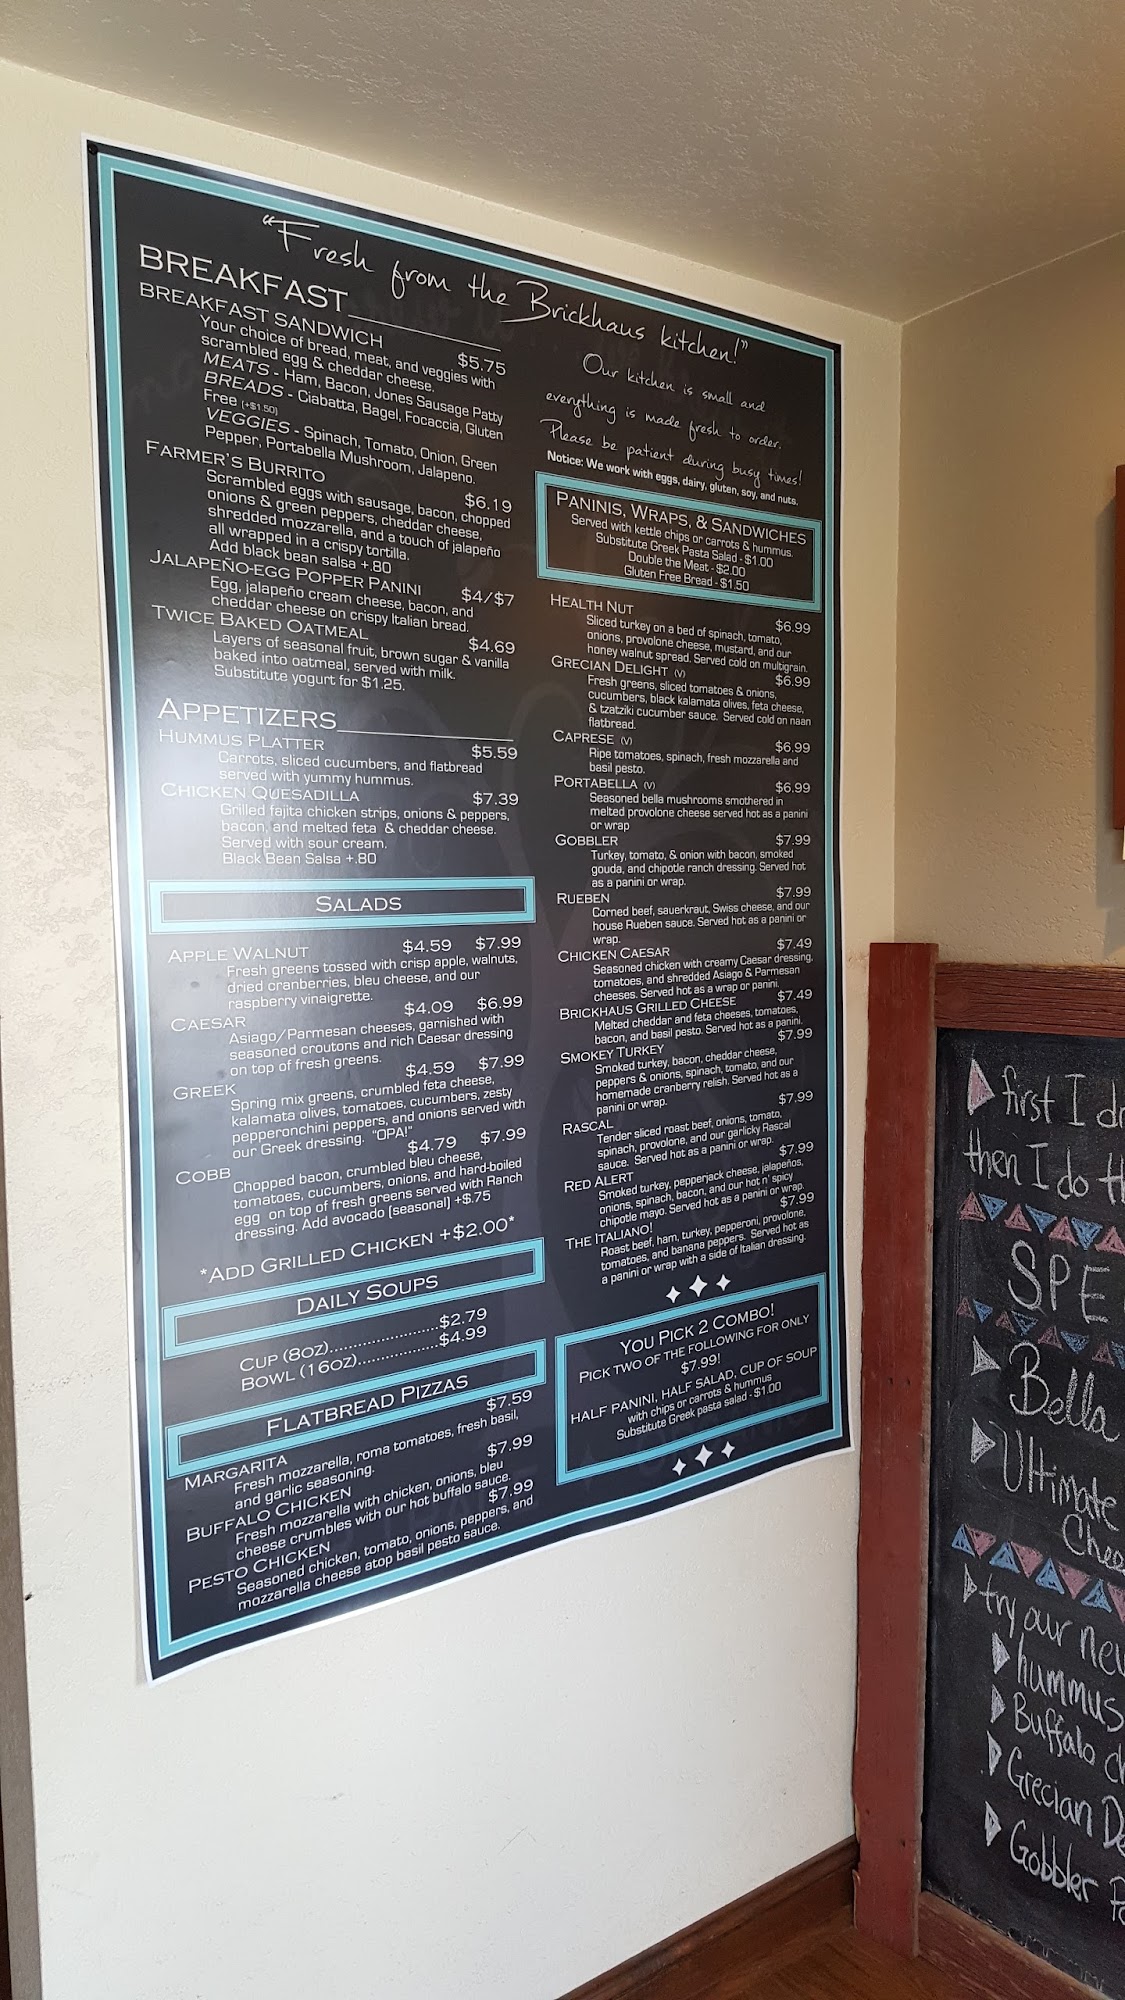 "Fresh from the Brickhaus kitchen!"
BREAKFAST
BREAKFAST SANDWICH $5.75
Your choice of bread, meat, and veggies with
scrambled egg & cheddar cheese.
MEATS - Ham, Bacon, Jones Sausage Patty
BREADS - Ciabatta, Bagel, Focaccia, Gluten
Free (+$1.50)
VEGGIES - Spinach, Tomato, Onion, Green
Pepper, Portabella Mushroom, Jalapeno.
FARMER'S BURRITO $6.19
Scrambled eggs with sausage, bacon, chopped
onions & green peppers, cheddar cheese,
shredded mozzarella, and a touch of jalapeño
all wrapped in a crispy tortilla.
Add black bean salsa +.80
JALAPEÑO-EGG POPPER PANINI $4/$7
Egg, jalapeño cream cheese, bacon, and
cheddar cheese on crispy Italian bread.
TWICE BAKED OATMEAL $4.69
Layers of seasonal fruit, brown sugar & vanilla
baked into oatmeal, served with milk.
Substitute yogurt for $1.25.
APPETIZERS
HUMMUS PLATTER $5.59
Carrots, sliced cucumbers, and flatbread
served with yummy hummus.
CHICKEN QUESADILLA $7.39
Grilled fajita chicken strips, onions & peppers,
bacon, and melted feta & cheddar cheese.
Served with sour cream.
Black Bean Salsa +.80
SALADS
APPLE WALNUT $4.59 $7.99
Fresh greens tossed with crisp apple, walnuts,
dried cranberries, bleu cheese, and our
raspberry vinaigrette.
CAESAR $4.09 $6.99
Asiago/Parmesan cheeses, garnished with
seasoned croutons and rich Caesar dressing
on top of fresh greens.
GREEK $4.59 $7.99
Spring mix greens, crumbled feta cheese,
kalamata olives, tomatoes, cucumbers, zesty
pepperonchini peppers, and onions served with
our Greek dressing. "OPA!"
COBB $4.79 $7.99
Chopped bacon, crumbled bleu cheese,
tomatoes, cucumbers, onions, and hard-boiled
egg on top of fresh greens served with Ranch
dressing. Add avocado (seasonal) +$.75
*ADD GRILLED CHICKEN +$2.00*
DAILY SOUPS
CUP (8OZ)..........................$2.79
BOWL (16OZ)..................$4.99
FLATBREAD PIZZAS
MARGARITA $7.59
Fresh mozzarella, roma tomatoes, fresh basil,
and garlic seasoning.
BUFFALO CHICKEN $7.99
Fresh mozzarella with chicken, onions, bleu
cheese crumbles with our hot buffalo sauce.
PESTO CHICKEN $7.99
Seasoned chicken, tomato, onions, peppers, and
mozzarella cheese atop basil pesto sauce.
Our kitchen is small and
everything is made fresh to order.
Please be patient during busy times!
Notice: We work with eggs, dairy, gluten, soy, and nuts.
PANINIS, WRAPS, & SANDWICHES
Served with kettle chips or carrots & hummus.
Substitute Greek Pasta Salad - $1.00
Double the Meat - $2.00
Gluten Free Bread - $1.50
HEALTH NUT $6.99
Sliced turkey on a bed of spinach, tomato,
onions, provolone cheese, mustard, and our
honey walnut spread. Served cold on multigrain.
GRECIAN DELIGHT (V) $6.99
Fresh greens, sliced tomatoes & onions,
cucumbers, black kalamata olives, feta cheese,
& tzatziki cucumber sauce. Served cold on naan
flatbread.
CAPRESE (V) $6.99
Ripe tomatoes, spinach, fresh mozzarella and
basil pesto.
PORTABELLA (V) $6.99
Seasoned bella mushrooms smothered in
melted provolone cheese served hot as a panini
or wrap
GOBBLER $7.99
Turkey, tomato, & onion with bacon, smoked
gouda, and chipotle ranch dressing. Served hot
as a panini or wrap.
RUEBEN $7.99
Corned beef, sauerkraut, Swiss cheese, and our
house Rueben sauce. Served hot as a panini or
wrap.
CHICKEN CAESAR $7.49
Seasoned chicken with creamy Caesar dressing,
tomatoes, and shredded Asiago & Parmesan
cheeses. Served hot as a wrap or panini.
BRICKHAUS GRILLED CHEESE $7.49
Melted cheddar and feta cheeses, tomatoes,
bacon, and basil pesto. Served hot as a panini.
SMOKEY TURKEY $7.99
Smoked turkey, bacon, cheddar cheese,
peppers & onions, spinach, tomato, and our
homemade cranberry relish. Served hot as a
panini or wrap.
RASCAL $7.99
Tender sliced roast beef, onions, tomato,
spinach, provolone, and our garlicky Rascal
sauce. Served hot as a panini or wrap.
RED ALERT $7.99
Smoked turkey, pepperjack cheese, jalapeños,
onions, spinach, bacon, and our hot n' spicy
chipotle mayo. Served hot as a panini or wrap.
THE ITALIANO! $7.99
Roast beef, ham, turkey, pepperoni, provolone,
tomatoes, and banana peppers. Served hot as
a panini or wrap with a side of Italian dressing.
YOU PICK 2 COMBO!
PICK TWO OF THE FOLLOWING FOR ONLY
$7.99!
HALF PANINI, HALF SALAD, CUP OF SOUP
with chips or carrots & hummus
Substitute Greek pasta salad - $1.00
first I dr
then I do th
SPE
Bella
Ultimate
Chee
try our new
hummus
Buffalo ch
Grecian De
Gobbler